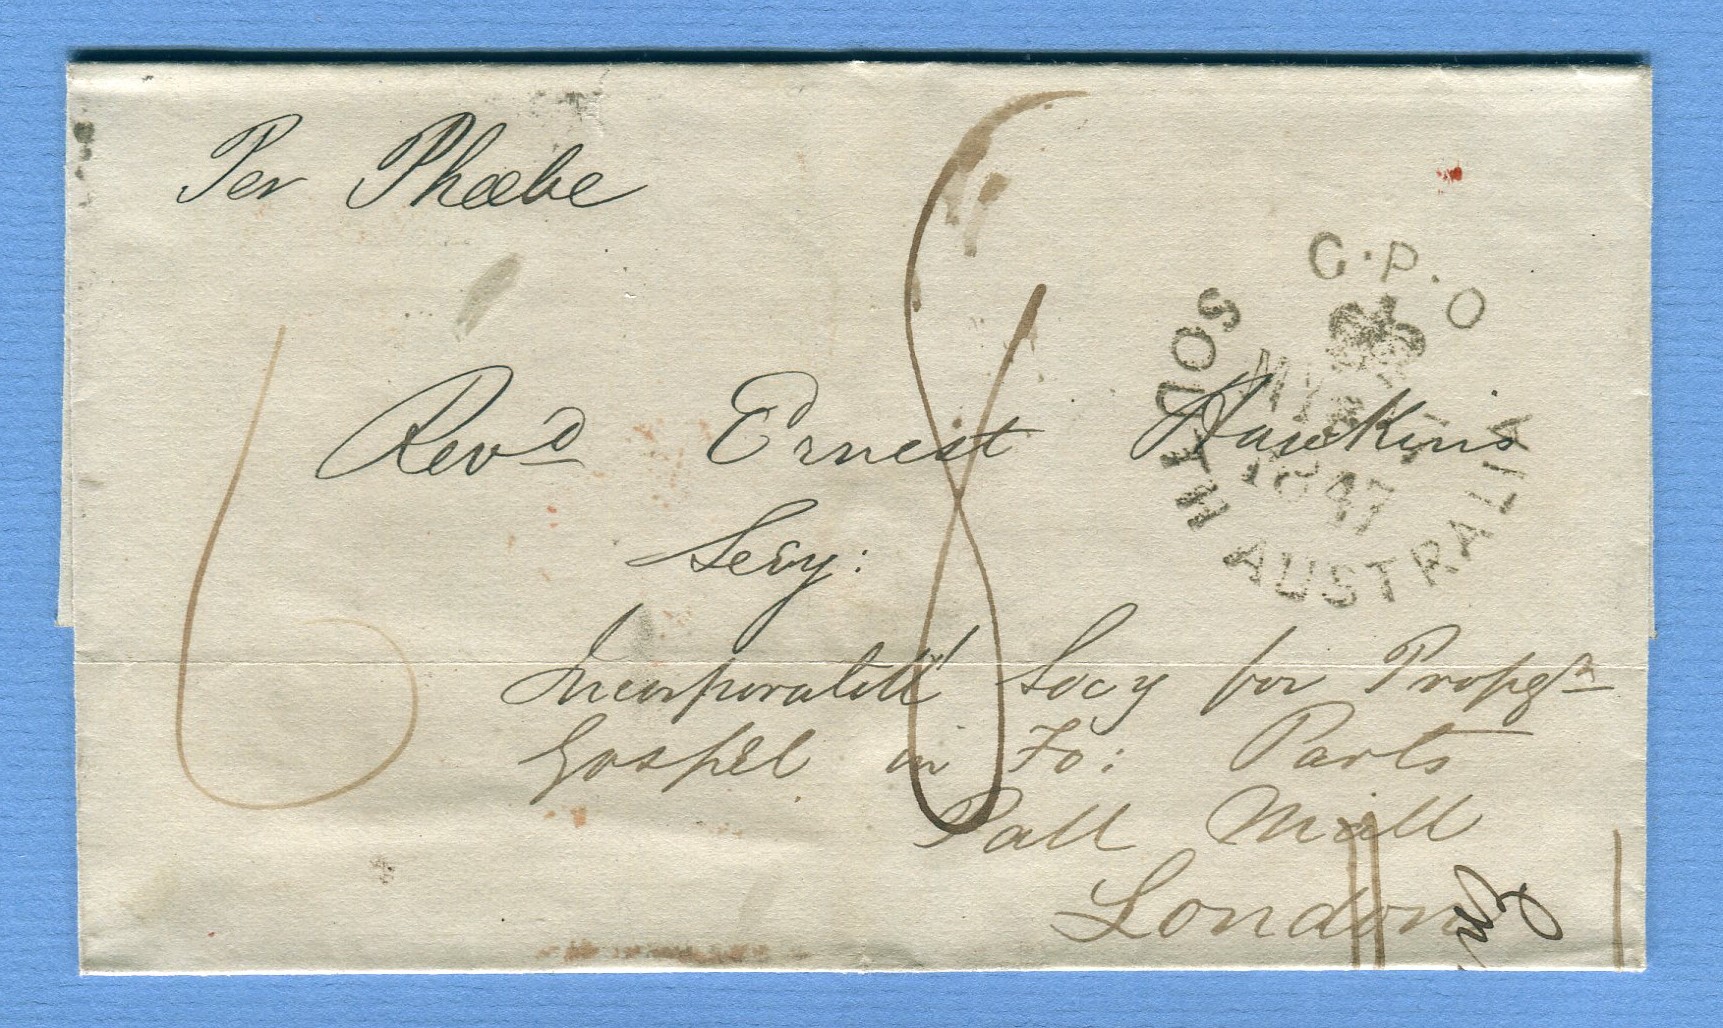 Per Phœbe
6
8
G.P.O
SOUTH AUSTRALIA
MY
1847
Revd Ernest Hawkins
Secy:
Incorporated Socy for Propgn
Gospel in Fo: Parts
Pall Mall
London